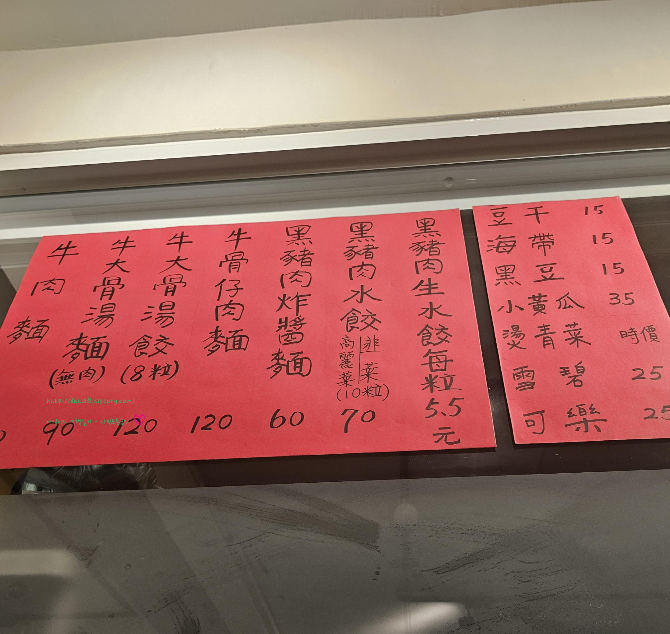 黑豬肉生水餃每粒5.5元
黑豬肉水餃 韭菜 高麗菜 (10粒) 70
黑豬肉炸醬麵 60
牛骨仔肉麵 120
牛大骨湯餃(8粒) 120
牛大骨湯麵(無肉) 90
牛肉麵
豆干 15
海帶 15
黑豆 15
小黃瓜 35
燙青菜 時價
雪碧 25
可樂 25